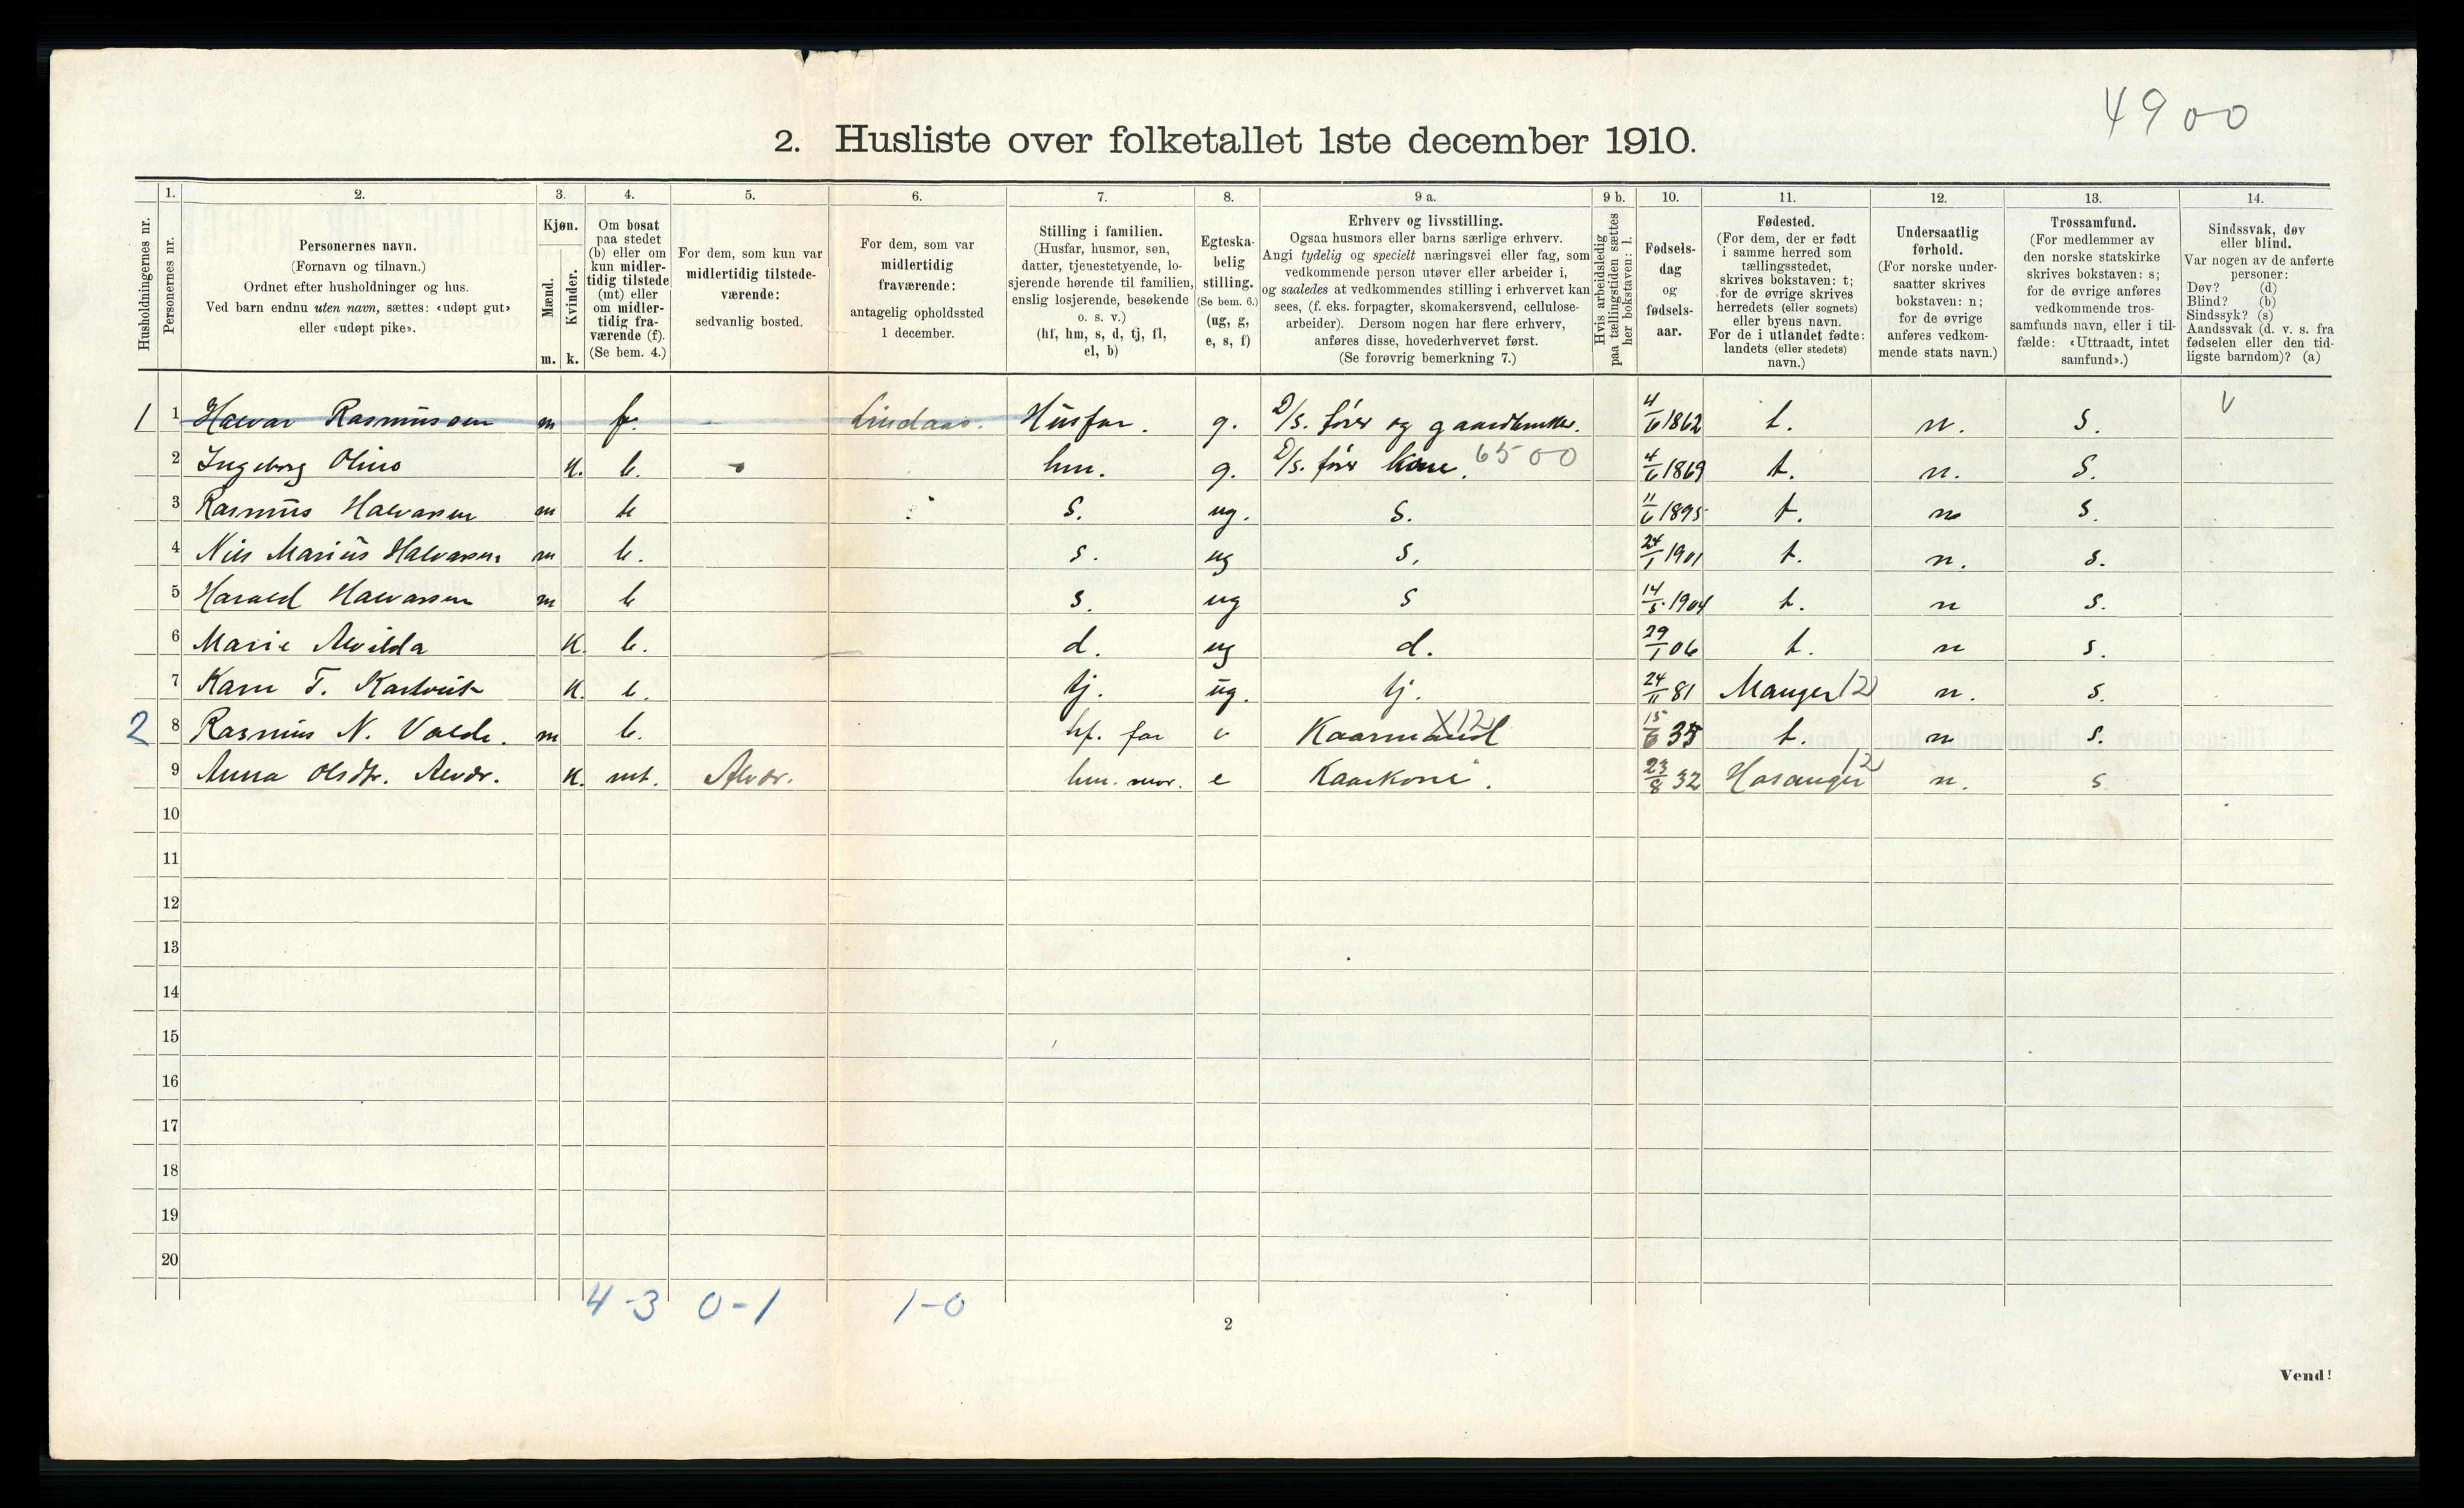 4900
2. Husliste over folketallet 1ste december 1910.
Husholdningernes nr.
1.
Personernes nr.
2.
Personernes navn.
(Fornavn og tilnavn.)
Ordnet efter husholdninger og hus.
Ved barn endnu uten navn, sættes: «udøpt gut»
eller «udøpt pike».
3.
Kjøn.
Mænd.
m.
Kvinder.
k.
4.
Om bosat
paa stedet
(b) eller om
kun midler-
tidig tilstede
(mt) eller
om midler-
tidig fra-
værende (f).
(Se bem. 4.)
5.
For dem, som kun var
midlertidig tilstede-
værende:
sedvanlig bosted.
6.
For dem, som var
midlertidig
fraværende:
antagelig opholdssted
1 december.
7.
Stilling i familien.
(Husfar, husmor, søn,
datter, tjenestetyende, lo-
sjerende hørende til familien,
enslig losjerende, besøkende
o. s. v.)
(hf, hm, s, d, tj, fl,
el, b)
8.
Egteska-
belig
stilling.
(Se bem. 6.)
(ug, g,
e, s, f)
9 a.
Erhverv og livsstilling.
Ogsaa husmors eller barns særlige erhverv.
Angi tydelig og specielt næringsvei eller fag, som
vedkommende person utøver eller arbeider i,
og saaledes at vedkommendes stilling i erhvervet kan
sees, (f. eks. forpagter, skomakersvend, cellulose-
arbeider). Dersom nogen har flere erhverv,
anføres disse, hovederhvervet først.
(Se forøvrig bemerkning 7.)
9 b.
Hvis arbeidsledig
paa tællingstiden sættes
her bokstaven: l.
10.
Fødsels-
dag
og
fødsels-
aar.
11.
Fødested.
(For dem, der er født
i samme herred som
tællingsstedet,
skrives bokstaven: t;
for de øvrige skrives
herredets (eller sognets)
eller byens navn.
For de i utlandet fødte:
landets (eller stedets)
navn.)
12.
Undersaatlig
forhold.
(For norske under-
saatter skrives
bokstaven: n;
for de øvrige
anføres vedkom-
mende stats navn.)
13.
Trossamfund.
(For medlemmer av
den norske statskirke
skrives bokstaven: s;
for de øvrige anføres
vedkommende tros-
samfunds navn, eller i til-
fælde: «Uttraadt, intet
samfund».)
14.
Sindssvak, døv
eller blind.
Var nogen av de anførte
personer:
Døv? (d)
Blind? (b)
Sindssyk? (s)
Aandssvak (d. v. s. fra
fødselen eller den tid-
ligste barndom)? (a)
1 1 Halvar Rasmussen m f. Lindaas. Husfar. g. D/s. fører og gaardbruker. 4/6 1862 t. n. s. v
2 Ingeborg Oline k. b. hm. g. D/s. fører Kone. 6500 4/6 1869 t. n. s.
3 Rasmus Halvarsen m b s. ug. s. 11/6 1895 t. n s.
4 Nils Marius Halvarsen m b. s. ug s. 24/1 1901 t. n. s.
5 Harald Halvarsen m b s. ug s 14/5 1904 t. n s.
6 Marie Alvilda k. b. d. ug d. 29/1 06 t. n s.
7 Karn T. k. b. tj. ug. tj. 24/11 81 Manger 12 n. s.
2 8 Rasmus N. Valde. m b. hf. far e Kaarmand X12 15/6 35 t. n s.
9 Anna Olsdtr. Alvær. k. mt. Alvær. hm. mor. e Kaarkone. 23/8 32 Hosanger 12 n. s
10
11
12
13
14
15
16
17
18
19
20
4-3 0-1 1-0
2
Vend!